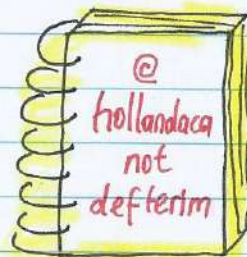 @
hollandaca
not
defterim